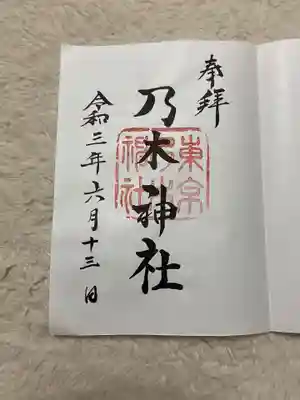 奉拝
乃木神社
東京乃木神社
令和三年六月十三日